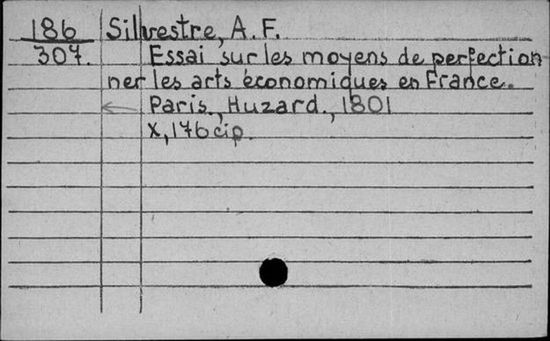 186 Silvestre, A. F.
307. Essai sur les moyens de perfection
ner les arts économiques en France.
Paris, Huzard., 1801
X, 176 cip.